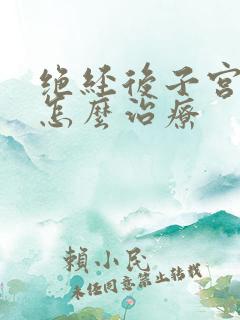 绝经後子宫
怎麼治療
賴小民
未经同意禁止转载